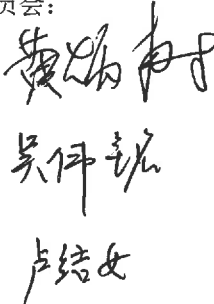 员会：
黄炳树
吴伟
卢结女